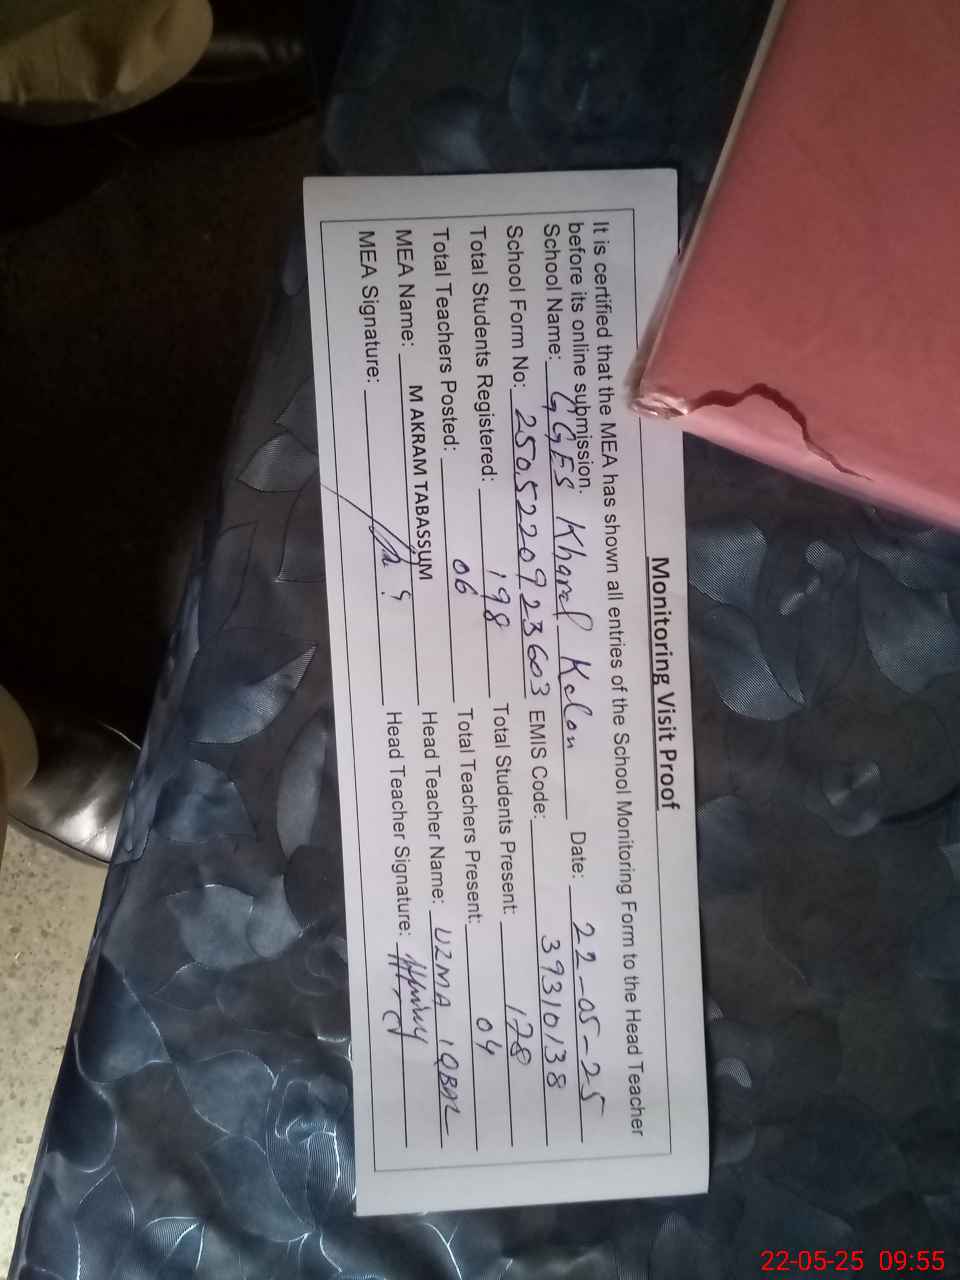 Monitoring Visit Proof
It is certified that the MEA has shown all entries of the School Monitoring Form to the Head Teacher
before its online submission.
School Name: GGES Kharal Kalan Date: 22-05-25
School Form No: 250522092 3603 EMIS Code: 39310138
Total Students Registered: 198 Total Students Present: 178
Total Teachers Posted: 06 Total Teachers Present: 04
MEA Name: M AKRAM TABASSUM Head Teacher Name: UZMA IQBAL
MEA Signature: Head Teacher Signature:
22-05-25 09:55